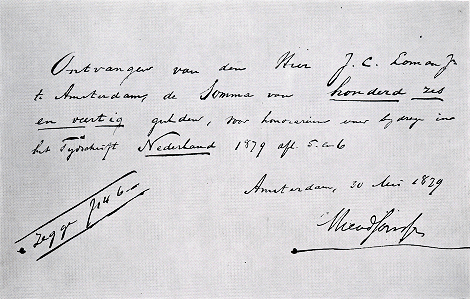 Ontvangen van den Heer J. C. Loman Jr
t. Amsterdam, de Somma van honderd zes
en veertig gulden, voor honorarium voor bijdrage in
het Tijdschrift Nederland 1879 afl. 5 en 6
Amsterdam, 30 Mei 1879
Zegge f 146.–